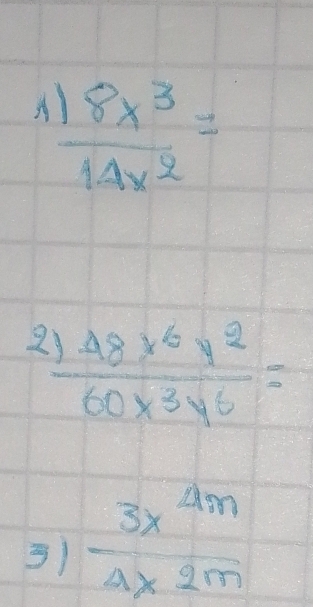 1) 8x³ =
14x²
2) 48x⁶y² =
60x³y⁶
3) 3x⁴ᵐ
4x²ᵐ